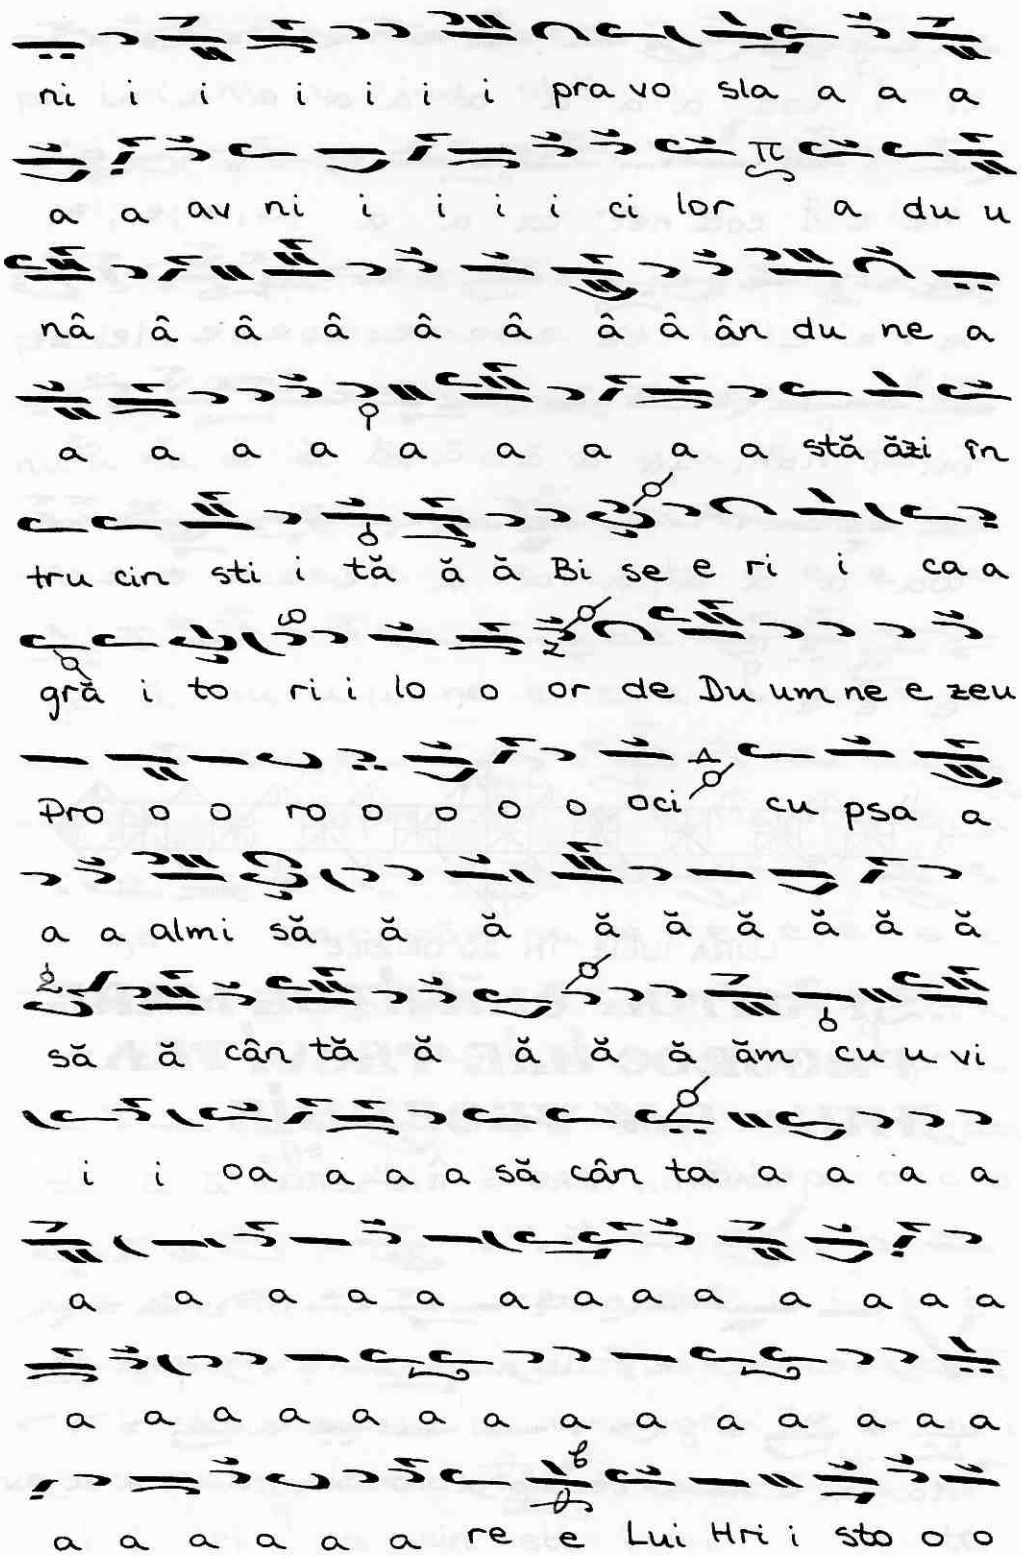 ni i i i i i i pra vo sla a a a
a a av ni i i i i ci lor a du u
nâ â â â â â â â ân du ne a
a a a a a a a a a stă ăzi în
tru cin sti i tă ă ă Bi se e ri i ca a
gră i to ri i lo o or de Du um ne e zeu
Pro o o ro o o o o oci cu psa a
a a almi să ă ă ă ă ă ă ă ă
să ă cân tă ă ă ă ă ăm cu u vi
i i oa a a a să cân ta a a a a
a a a a a a a a a a a a a
a a a a a a a a a a a a a
a a a a a a re e Lui Hri i sto o o